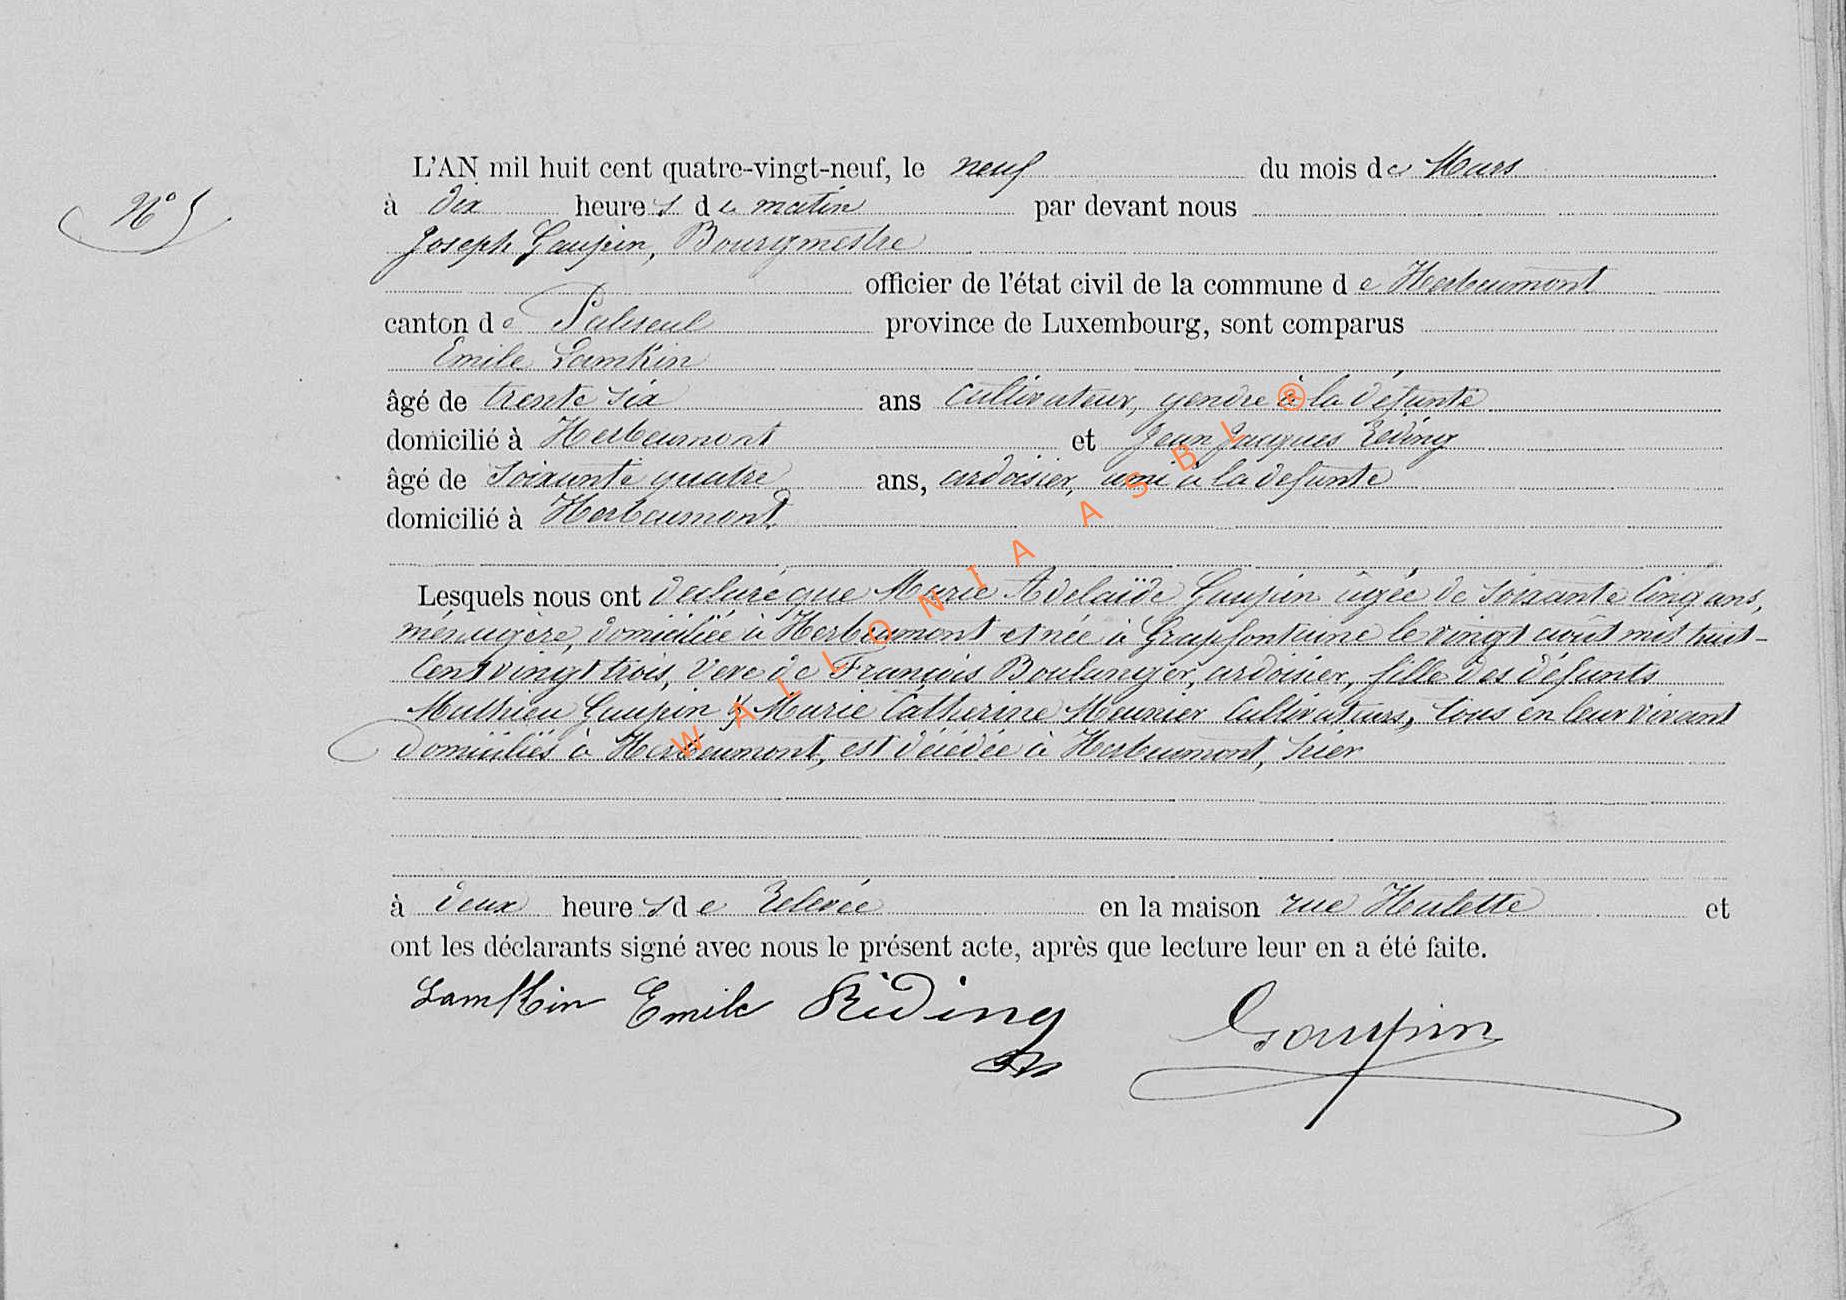 N° 5
L'AN mil huit cent quatre-vingt-neuf, le neuf du mois de Mars
à dix heures de matin par devant nous
Joseph Goupin, Bourgmestre
officier de l'état civil de la commune de Herbeumont
canton de Paliseul province de Luxembourg, sont comparus
Emile Lamkin
âgé de trente six ans cultivateur, gendre à la défunte
domicilié à Herbeumont et Jean Jacques Réding
âgé de soixante quatre ans, ardoisier, ami à la defunte
domicilié à Herbeumont
Lesquels nous ont declaré que Marie Adelaïde Goupin âgée de soixante Cinq ans,
ménagère, domiciliée à Herbeumont et née à Grapfontaine le vingt août mil huit-
Cent vingt trois, veve de François Boulanger, ardoisier, fille des défunts
Mathieu Goupin & Marie Catherine Meunier Cultivateurs, tous en leur vivant
domiciliés à Herbeumont, est décédée à Herbeumont, hier
à deux heures de Relevée en la maison rue Hulette et
ont les déclarants signé avec nous le présent acte, après que lecture leur en a été faite.
Lamkin Emile Réding Goupin
WALLONIA ASBL ®